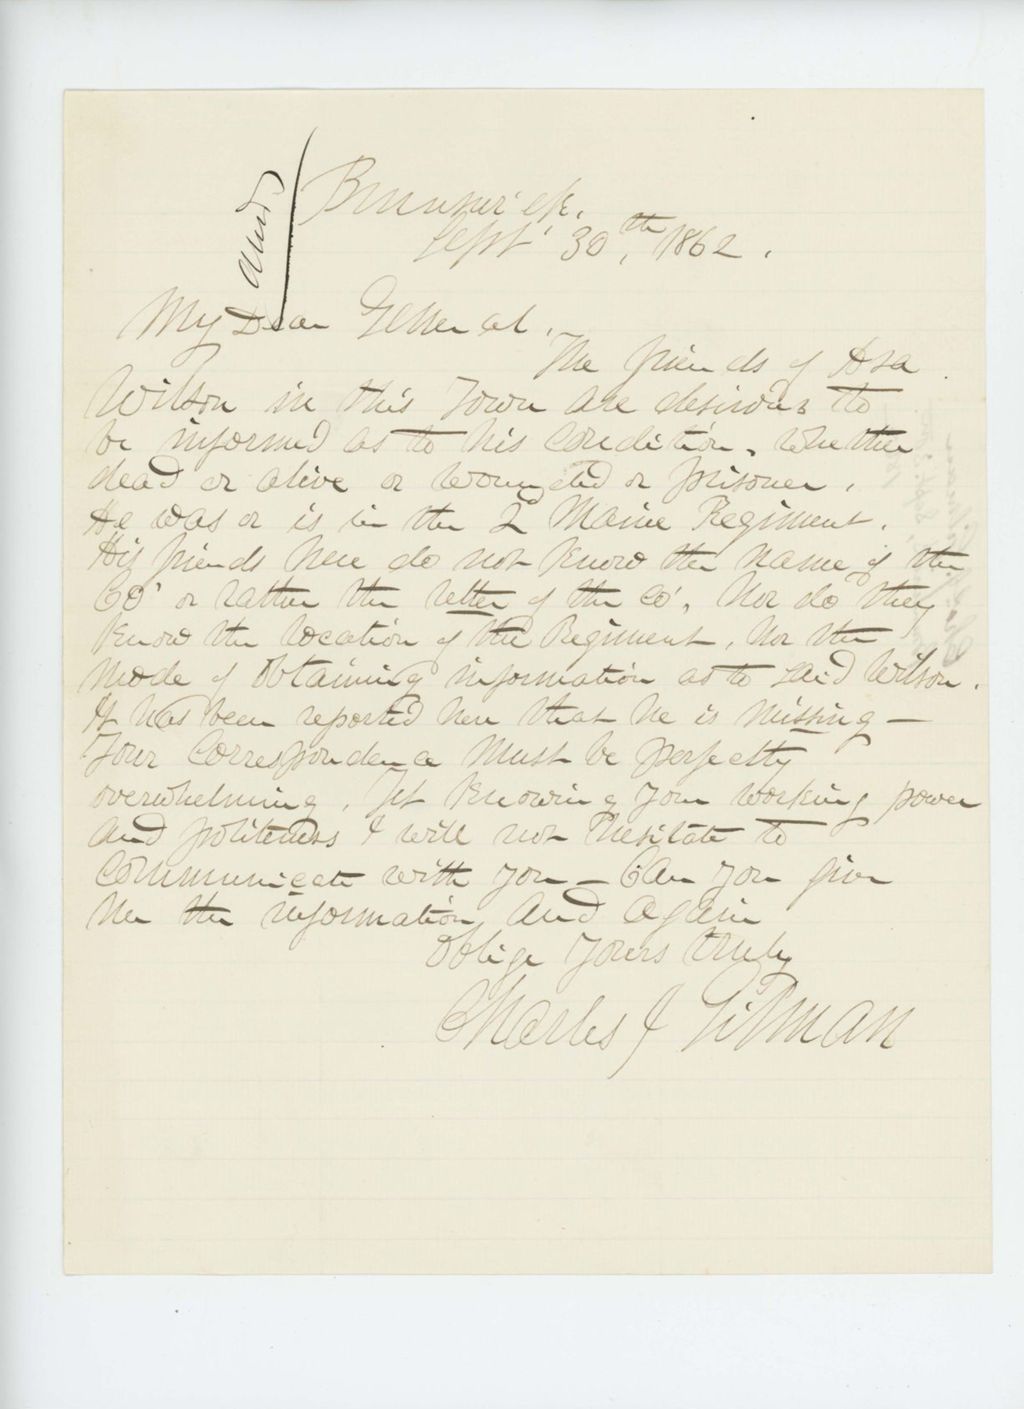 Brunswick,
Sept 30,th 1862.
My Dear General.
The friends of Asa
Wilson in this Town are desirous to
be informed as to his condition, whether
dead or alive or wounded or prisoner.
He was or is in the 2d Maine Regiment.
His friends here do not know the name of the
Co' or rather the letter of the Co'. Nor do they
know the location of the Regiment, nor the
mode of obtaining information as to said Wilson.
It has been reported here that he is missing -
Your correspondence must be perfectly
overwhelming. Yet knowing your working power
and politeness I will not hesitate to
communicate with you - Can you give
me the information, and again
oblige yours truly
Charles J Gilman